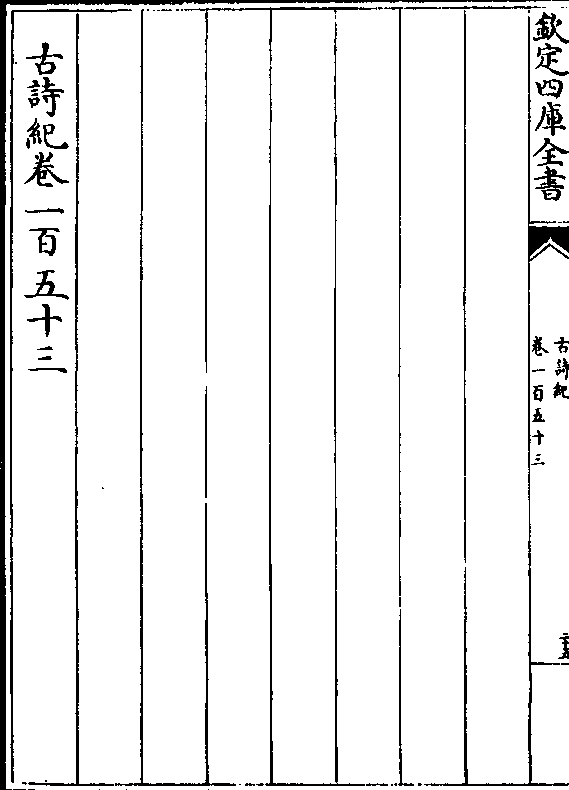 欽定四庫全書
古詩紀
卷一百五十三
古詩紀卷一百五十三